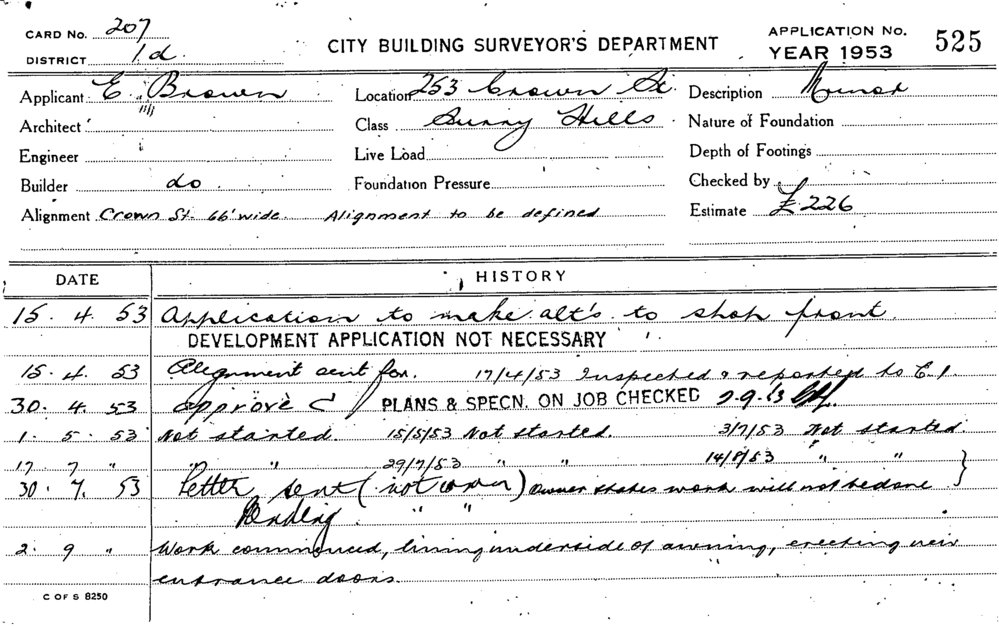 CARD No. 207
DISTRICT 1d
CITY BUILDING SURVEYOR'S DEPARTMENT
APPLICATION No.
YEAR 1953
525
Applicant E. Brown
Location 253 Crown St.
Description Minor
Architect
Class Surry Hills
Nature of Foundation
Engineer
Live Load
Depth of Footings
Builder do
Foundation Pressure
Checked by
Alignment Crown St. 66' wide. Alignment to be defined
Estimate £226
DATE HISTORY
15. 4. 53 Application to make alt's to shop front.
DEVELOPMENT APPLICATION NOT NECESSARY
15. 4. 53 Alignment sent for. 17/4/53 Inspected & reported to C.I.
30. 4. 53 Approved PLANS & SPECN. ON JOB CHECKED 2.9.53
1. 5. 53 Not started. 15/5/53 Not started. 3/7/53 Not started.
17 7 " " " 29/7/53 " " 14/8/53 " " }
30. 7. 53 Letter sent (not owner) Owner states work will not be done
Pending. " "
2. 9 " Work commenced, lining underside of awning, erecting new
entrance doors.
C OF S 8250